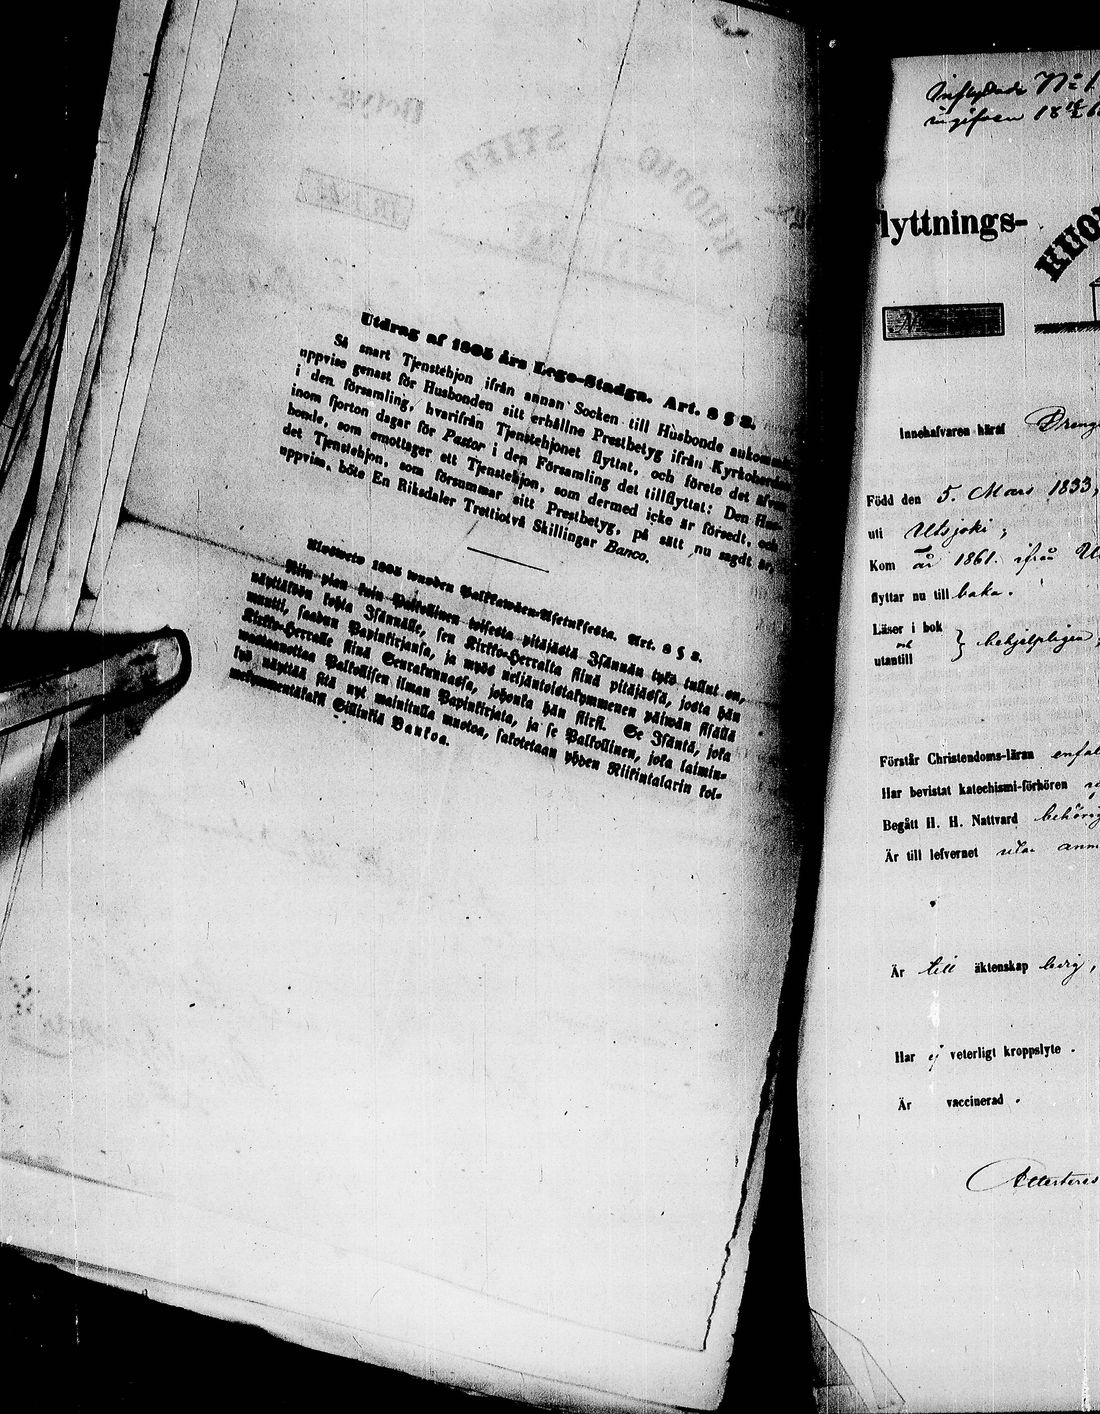 Utdrag af 1805 års Lego-Stadga. Art. 8 § 2.
Så snart Tjenstehjon ifrån annan Socken till Husbonde ankommit,
uppvise genast för Husbonden sitt erhållne Prestbetyg ifrån Kyrkoherden
i den församling, hvarifrån Tjenstehjonet flyttat, och förete det äfven
inom fjorton dagar för Pastor i den Församling det tillflyttat: Den Hus-
bonde, som emottager ett Tjenstehjon, som dermed icke är försedt, och
det Tjenstehjon, som försummar sitt Prestbetyg, på sätt nu sagdt är,
uppvisa, böte En Riksdaler Trettiotvå Skillingar Banco.
Ulosweto 1805 wuoden Palkkawäen-Asetuksesta. Art. 8 § 2.
Niin pian kuin Palkollinen toisesta pitäjästä Isännän tykö tullut on,
näyttäkön kohta Isännälle, sen Kirkko-Herralta siinä pitäjässä, josta hän
muutti, saadun Papinkirjansa, ja myös neljäntoistakymmenen päiwän sisällä
Kirkko-Herralle siinä Seurakunnassa, johonka hän siirsi. Se Isäntä, joka
wastaanottaa Palkollisen ilman Papinkirjata, ja se Palkollinen, joka laimin-
lyö näyttää sitä nyt mainitulla muotoa, sakotetaan yhden Riikintalarin kol-
mekymmentäkaksi Sillinkiä Bankoa.
ingifven 18
lyttnings-
KUO
Innehafvaren häraf Dreng
Född den 5. Mars 1833,
uti Utsjoki;
Kom år 1861. ifrån U
flyttar nu till baka.
Läser i bok
och
utantill } behjelpligen;
Förstår Christendoms-läran enfal
Har bevistat katechismi-förhören
Begått H. H. Nattvard behörig
Är till lefvernet utan anm
Är till äktenskap ledig,
Har ej veterligt kroppslyte.
Är vaccinerad.
Attesteras